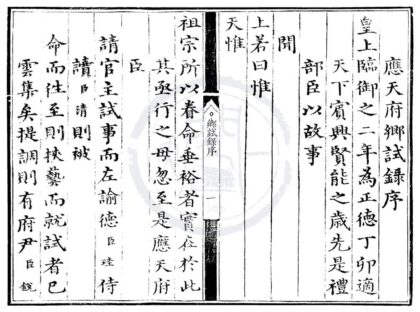 應天府鄉試錄序
皇上臨御之二年為正德丁卯適
天下賓興賢能之歲先是禮
部臣以故事
聞
上若曰惟
天惟
鄉試錄序
祖宗所以眷命垂裕者實在於此
其亟行之毋忽至是應天府
請官主試事而左諭德臣珪侍
讀臣清則被
命而往至則挾藝而就試者已
雲集矣提調則有府尹臣銳